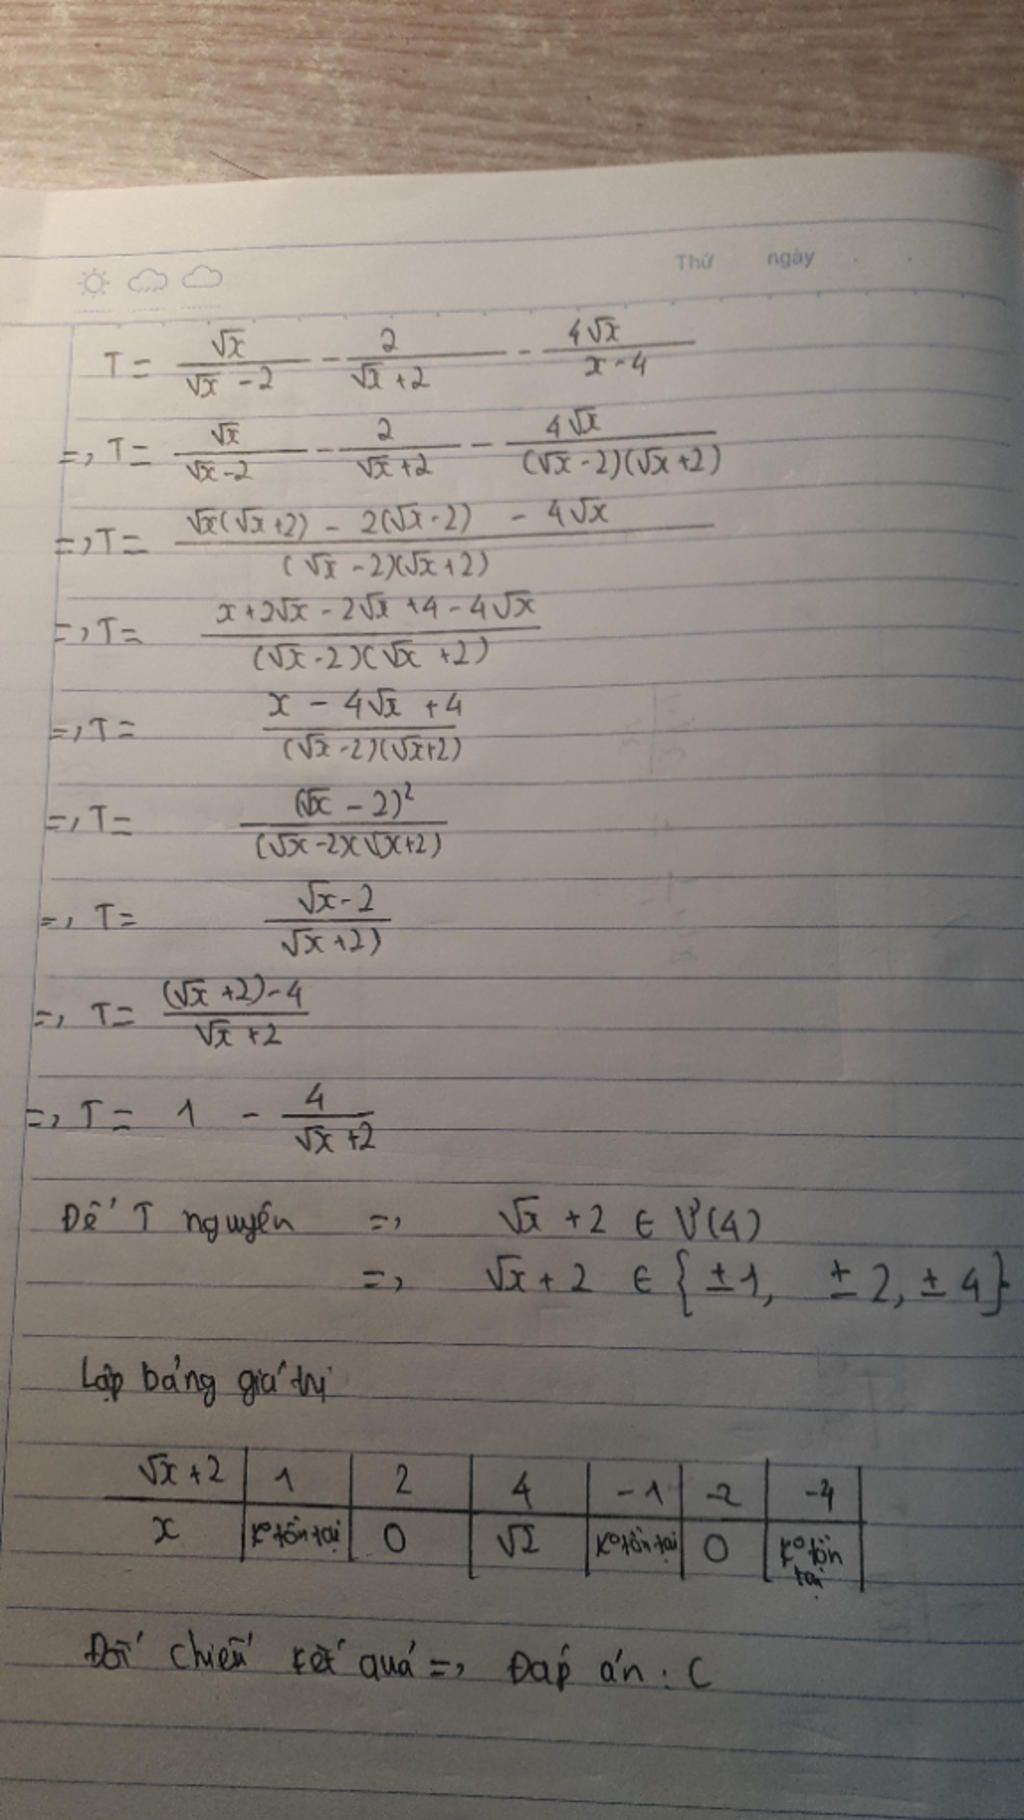 Thứ ngày
T = √x/(√x - 2) - 2/(√x + 2) - 4√x/(x - 4)
=> T = √x/(√x - 2) - 2/(√x + 2) - 4√x/((√x - 2)(√x + 2))
=> T = (√x(√x + 2) - 2(√x - 2) - 4√x)/((√x - 2)(√x + 2))
=> T = (x + 2√x - 2√x + 4 - 4√x)/((√x - 2)(√x + 2))
=> T = (x - 4√x + 4)/((√x - 2)(√x + 2))
=> T = (√x - 2)²/((√x - 2)(√x + 2))
=> T = (√x - 2)/(√x + 2)
=> T = ((√x + 2) - 4)/(√x + 2)
=> T = 1 - 4/(√x + 2)
Để T nguyên => √x + 2 ∈ Ư(4)
=> √x + 2 ∈ {±1, ±2, ±4}
Lập bảng giá trị
√x + 2 | 1 | 2 | 4 | -1 | -2 | -4
x | k° tồn tại | 0 | √2 | k° tồn tại | 0 | k° tồn tại
Đối chiếu kết quả => Đáp án : C